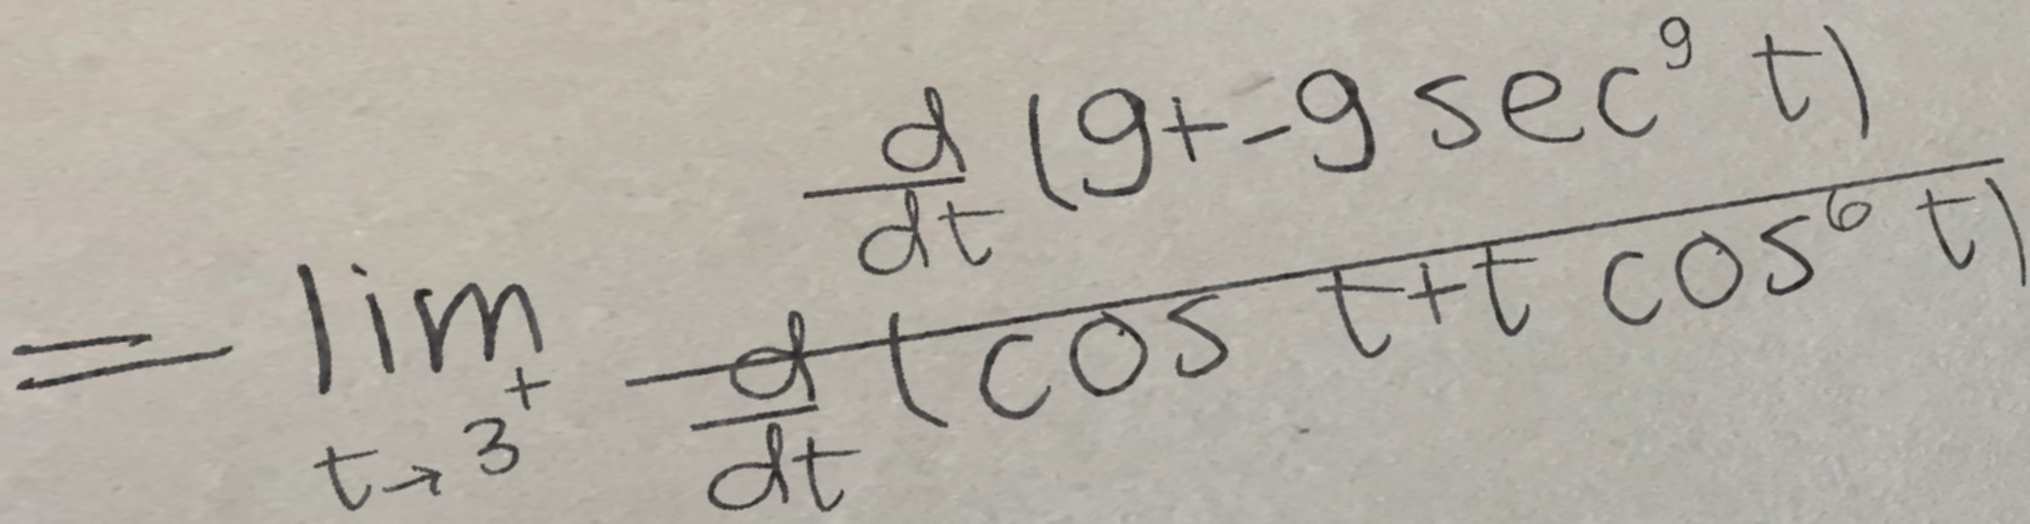 = lim_{t→3^+} \frac{\frac{d}{dt}(9+-9 sec^9 t)}{\frac{d}{dt}(cos t+t cos^6 t)}